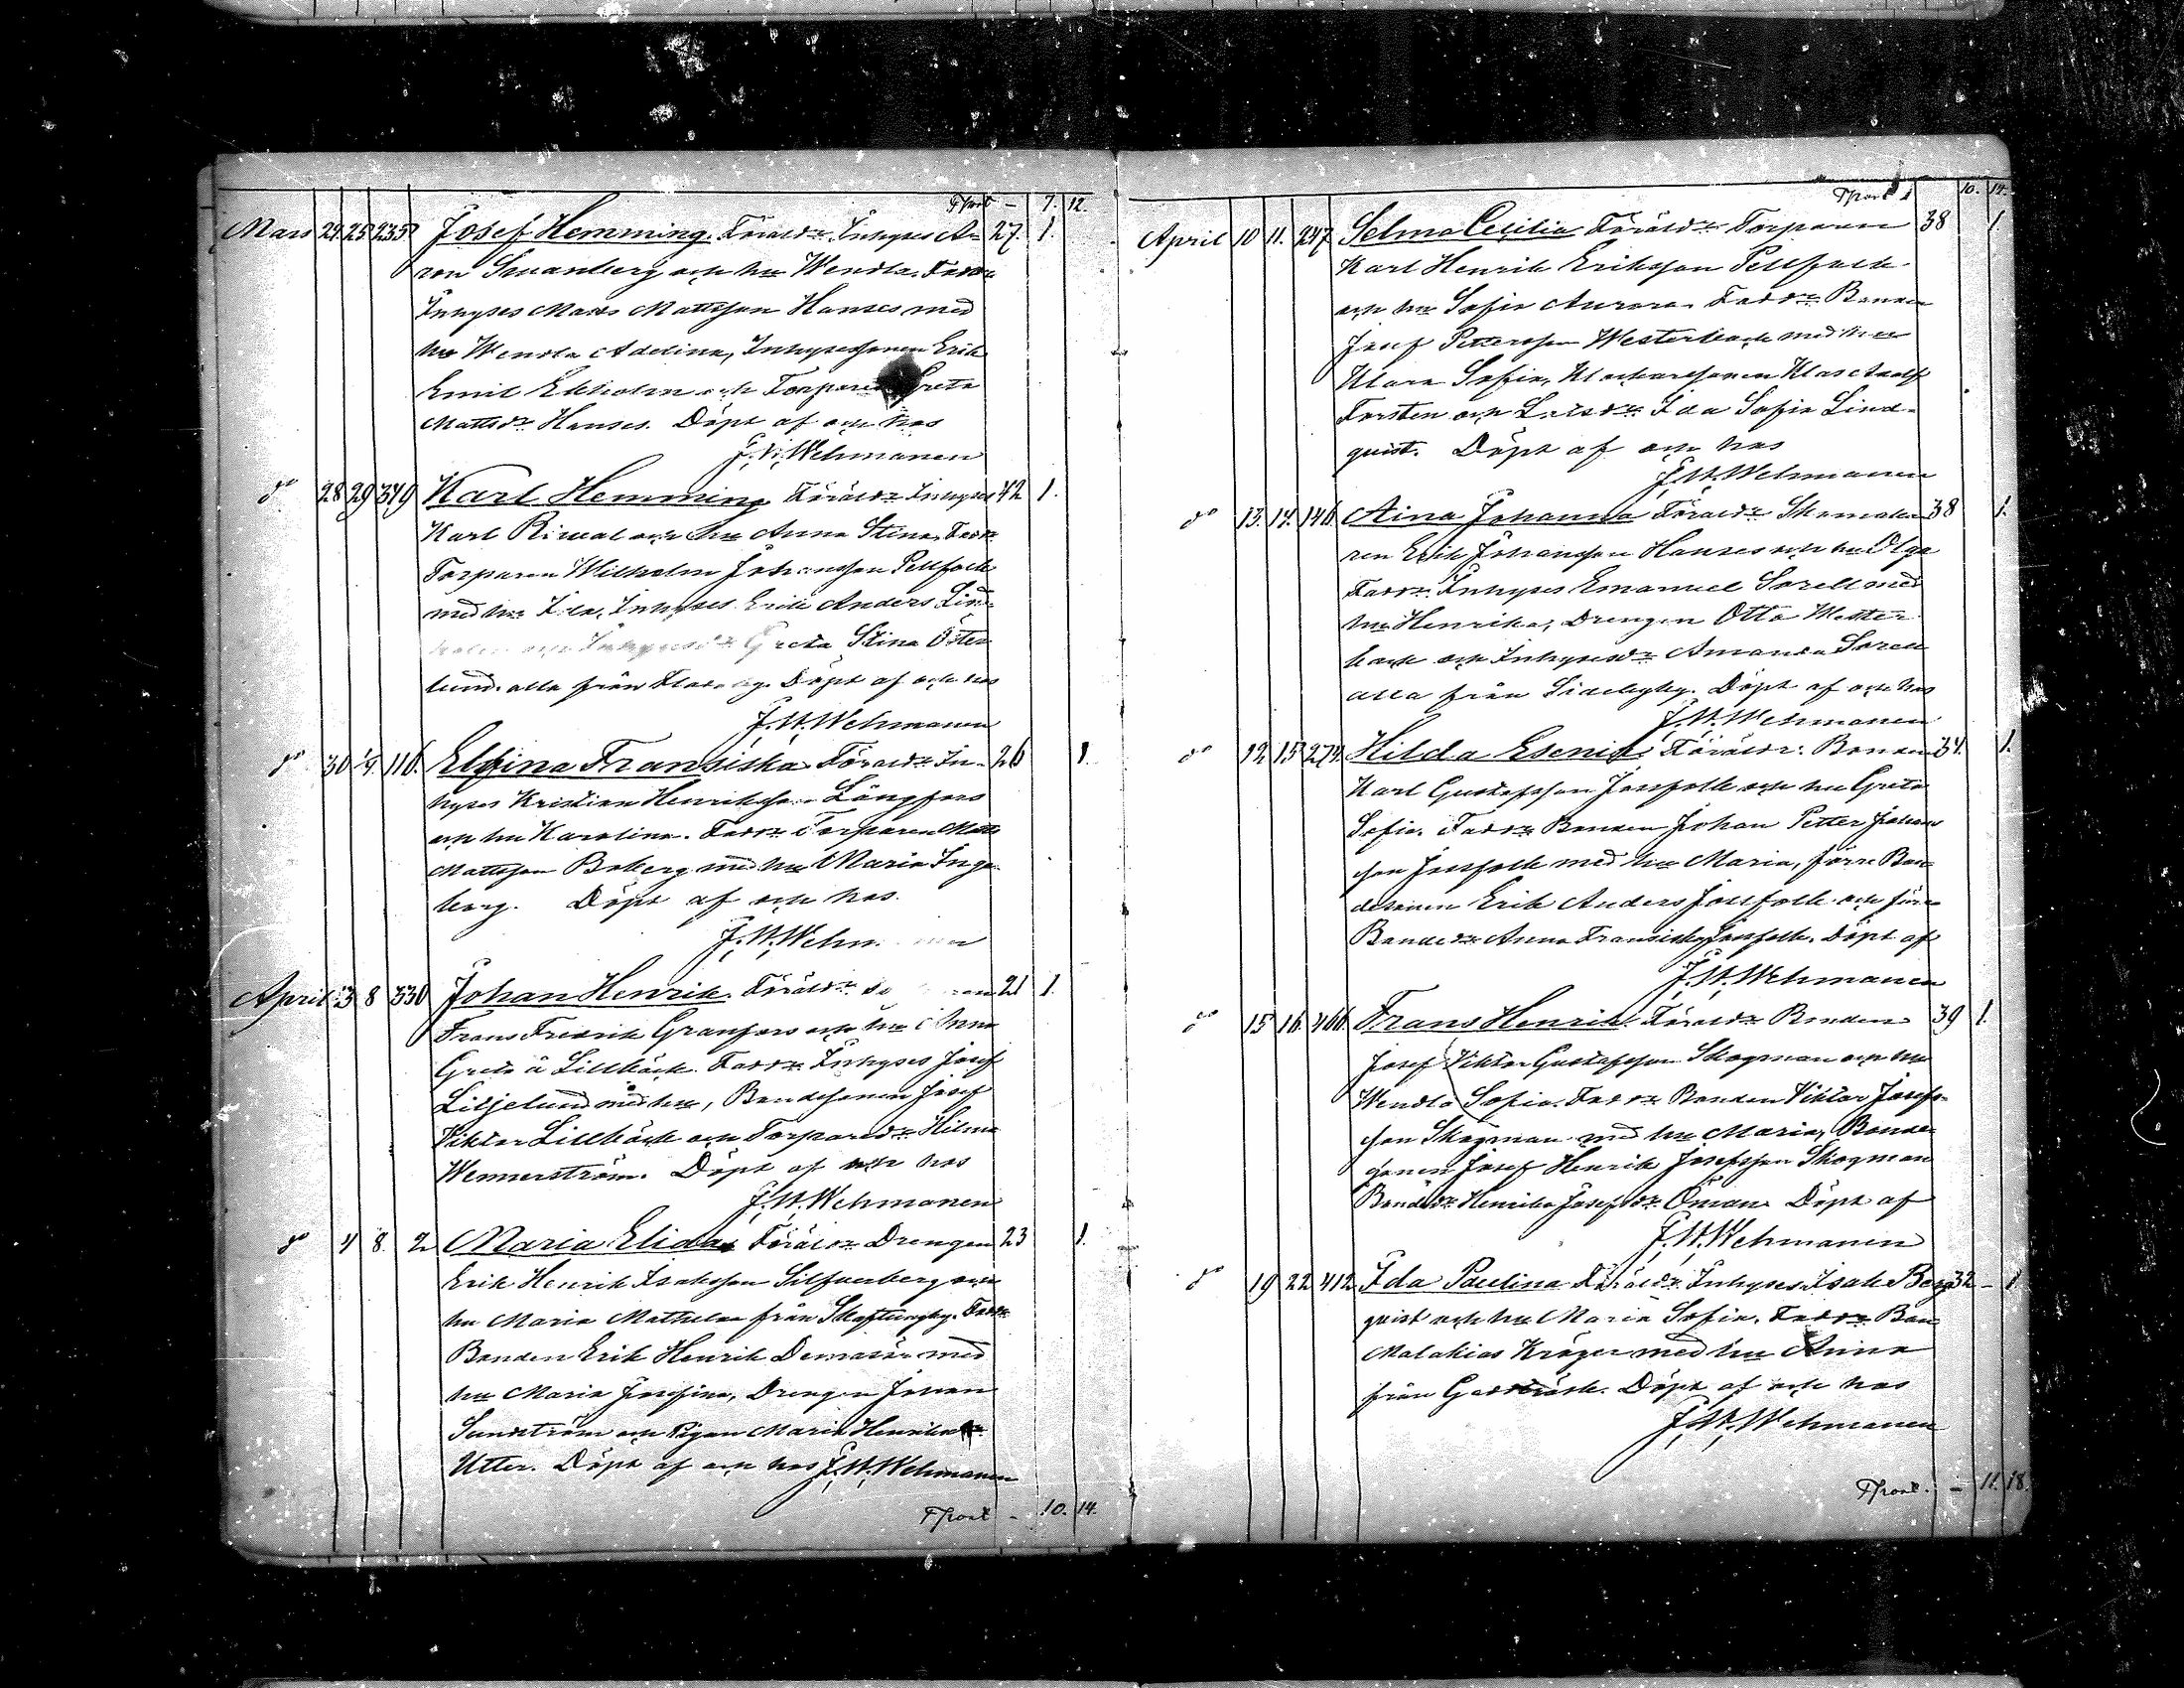 Tport - 7. 12.
Mars 24. 25. 235 Josef Hemming. Föräldr: Inhyses Aa- 27. 1.
ron Smarberg och hu Wendla. Faddr:
Inhyses Matts Mattsson Hanses med
hu Wendla Adelina, Inhysessonen Erik
Emil Ekholm och Torpared: Greta
Mattsdr Hanses. Döpt af och hos
J. W. Wehmanen
do 28 29 349 Karl Hemming Föräldr: Inhyses 42 1.
Karl Rimal och hu Anna Stina, Faddr:
Torparen Wilhelm Johansson Pellfolk
med hu, Inhyses Erik Anders Lind-
och Inhysesdr: Greta Stina Öster-
lund alla från Döpt af och hos
J. W. Wehmanen
do 30 1/4. 116. Elfina Fransiska Föräldr: In- 26 1.
hyses Kristian Henriksson Långfors
och hu Karolina. Faddr: Torparen Matts
Mattsson Boberg med hu Maria Inge-
borg. Döpt af och hos.
J. W. Wehmanen
April 3 8 330 Johan Henrik. Föräldr: 21 1.
Frans Fredrik Granfors och hu Anna
Greta å Lillbäck. Faddr: Inhyses Josef
Liljelund med hu, Bondesonen Josef
Viktor Lillbäck och Torparedr: Hilma
Wennerström. Döpt af och hos
J. W. Wehmanen
do 4 8. 2 Maria Elida Föräldr: Drengen 23 1.
Erik Henrik Isaksson Silfverberg och
hu Maria Mathilda från Skaftungby. Faddr:
Bonden Erik Henrik med
hu Maria Josefina, Drengen Johan
Sundström och Pigan Maria Henriksdr:
Utter. Döpt af och hos J. W. Wehmanen
Tport - 10. 14.
Tport 10. 14.
April 10 11. 247 Selma Cecilia Föräldr: Torparen 38 1.
Karl Henrik Eriksson Pellfolk
och hu Sofia Aurora. Faddr: Bonden
Josef Pettersson Westerback med hu
Klara Sofia, Klockaresonen Klas Adolf
Forsten och Ida Sofia Lind-
quist. Döpt af och hos
J. W. Wehmanen
do 13. 14. 146 Aina Johanna Föräldr: Skomaka- 38 1.
ren Erik Johansson Hanses och hu Olga
Faddr: Inhyses Emanuel Sorell med
hu Henrika, Drengen Otto Wester-
back och Inhysesdr: Amanda Sorell
alla från Sideby. Döpt af och hos
J. W. Wehmanen
do 12. 15 274 Hilda Esenia Föräldr: Bonden 34. 1.
Karl Gustafsson Jossfolk och hu Greta
Sofia. Faddr: Bonden Johan Petter Johans-
son Jossfolk med hu Maria, förre Bon-
desonen Erik Anders Jossfolk och förre
Bondedr: Anna Fransiska Jossfolk. Döpt af
J. W. Wehmanen
do 15 16. 466 Frans Henrik. Föräldr: Bonden 39 1.
Josef Viktor Gustafsson Skogman och hu
Wendla Sofia. Faddr: Bonden Viktor Josefs-
son Skogman med hu Maria, Bonde-
sonen Josef Henrik Josefsson Skogman
Bondedr: Henrika Josefsdr: Öman. Döpt af
J. W. Wehmanen
do 19 22 412 Ida Paulina Föräldr: Inhyses Isak Berg- 32 - 1.
quist och hu Maria Sofia. Faddr: Bon
Malakias Kröger med hu Anna
från Gaddträsk. Döpt af och hos
J. W. Wehmanen
Tport. - 11. 18.